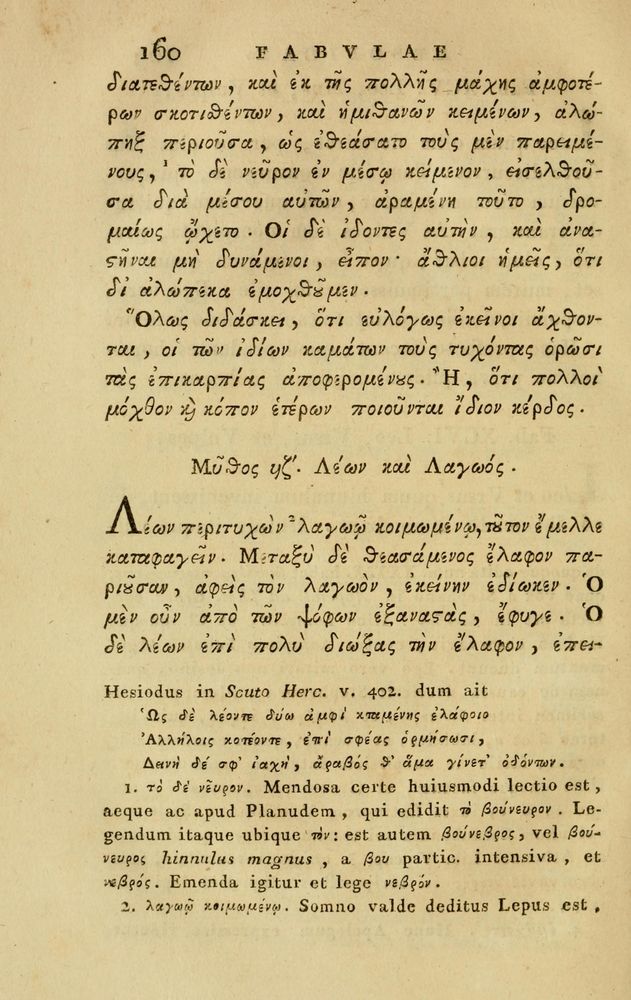 160 FABVLAE
διατεθέντων, καὶ ἐκ τῆς πολλῆς μάχης ἀμφοτέ-
ρων σκοτιθέντων, καὶ ἡμιθανῶν κειμένων, ἀλώ-
πηξ περιοῦσα, ὡς ἐθεάσατο τοὺς μὲν παρειμέ-
νους, ¹ τὸ δὲ νεῦρον ἐν μέσῳ κείμενον, εἰσελθοῦ-
σα διὰ μέσου αὐτῶν, ἀραμένη τοῦτο, δρο-
μαίως ᾤχετο. Οἱ δὲ ἰδόντες αὐτὴν, καὶ ἀνα-
ϛῆναι μὴ δυνάμενοι, εἶπον· ἄθλιοι ἡμεῖς, ὅτι
δἰ ἀλώπεκα ἐμοχθȣ͂μεν.
Ὅλως διδάσκει, ὅτι εὐλόγως ἐκεῖνοι ἄχθον-
ται, οἱ τῶν ἰδίων καμάτων τοὺς τυχόντας ὁρῶσι
τὰς ἐπικαρπίας ἀποφερομένȣς. Ἢ, ὅτι πολλοὶ
μόχθον ϗ̀ κόπον ἑτέρων ποιοῦνται ἴδιον κέρδος.
Μῦθος ϟζʹ. Λέων καὶ Λαγωός.
Λέων περιτυχὼν ² λαγωῷ κοιμωμένῳ, τȣ͂τον ἔμελλε
καταφαγεῖν. Μεταξὺ δὲ θεασάμενος ἔλαφον πα-
ριȣ͂σαν, ἀφεὶς τὸν λαγωὸν, ἐκείνην ἐδίωκεν. Ὁ
μὲν οὖν ἀπὸ τῶν ψόφων ἐξαναϛὰς, ἔφυγε. Ὁ
δὲ λέων ἐπὶ πολὺ διώξας τὴν ἔλαφον, ἐπει-
Hesiodus in Scuto Herc. v. 402. dum ait
Ὡς δὲ λέοντε δύω ἀμφὶ κταμένης ἐλάφοιο
Ἀλλήλοις κοτέοντε, ἐπὶ σφέας ὁρμήσωσι,
Δεινὴ δέ σφ' ἰαχὴ, ἄραβός θ' ἅμα γίνετ' ὀδόντων.
1. τὸ δέ νεῦρον. Mendosa certe huiusmodi lectio est,
aeque ac apud Planudem, qui edidit τὸ βούνευρον. Le-
gendum itaque ubique τόν: est autem βούνεβρος, vel βού-
νευρος hinnulus magnus, a βου partic. intensiva, et
νεβρός. Emenda igitur et lege νεβρόν.
2. λαγωῷ κοιμωμένῳ. Somno valde deditus Lepus est,